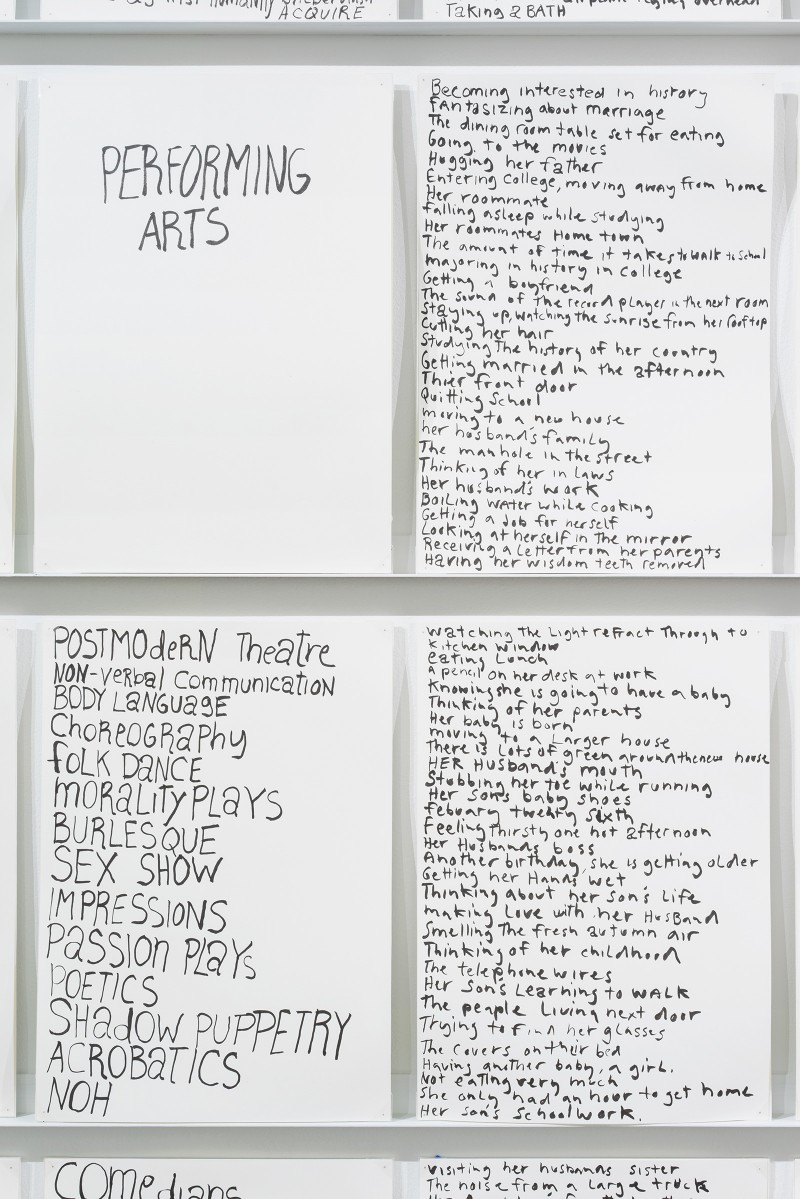 ACQUIRE
Taking a BATH
PERFORMING
ARTS
Becoming interested in history
fANtasizing about marriage
The dining room table set for eating
Going to the movies
Hugging her father
Entering College, moving away from home
Her roommate
falling asleep while studying
Her roommates Home town
The amount of time it takes to walk to School
majoring in history in college
Getting a boyfriend
The sound of the record player in the next room
Staying up, watching the sunrise from her rooftop
Cutting her hair
Studying The history of her country
Getting married in the afternoon
Thier front door
Quitting School
moving to a new house
her husband's family
The manhole in the street
Thinking of her in laws
Her husband's work
Boiling water while cooking
Getting a Job for herself
Looking at herself in the mirror
Receiving a Letter from her parents
Having her wisdom teeth removed
POSTMOdeRN Theatre
NON-verbal Communication
BODY LANGUAGE
ChoreoGRAphy
foLK DANCE
moRaLiTY PLAYS
BURLESQUE
SEX SHOW
IMPRESSIONS
Passion PLAYs
POETICS
SHadow PUPPETRY
ACROBATICS
NOH
watching the Light refract Through to
kitchen window
eating Lunch
A pencil on her desk at work
Knowing she is going to have a baby
Thinking of her parents
Her baby is born
moving to a Larger house
There is Lots of green around the new house
HER HUsband's mouth
Stubbing her toe while running
Her Son's baby shoes
febuary twenty sixth
Feeling Thirsty one hot afternoon
Her Husbands boss
Another birthday, she is getting older
Getting her Hands wet
Thinking about her Son's Life
making Love with her HusBand
Smelling The fresh autumn air
Thinking of her childhood
The telephone wires
Her Son's Learning to WALK
The people Living next door
Trying to find her glasses
The Covers on their bed
Having another baby, a girl.
Not eating very much
She only had an hour to get home
Her son's Schoolwork.
Comedians
visiting her husbands sister
The noise from a Large truck